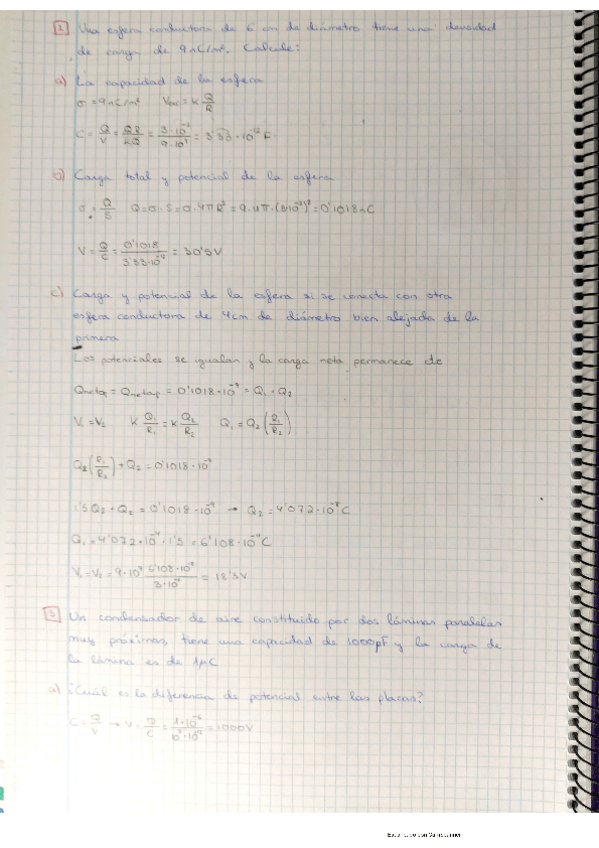 2 Una esfera conductora de 6 cm de diámetro tiene una densidad
de carga de 9nC/m². Calcule:
a) La capacidad de la esfera
σ = 9nC/m² V = K Q/R
C = Q/V = QR/KQ = 3·10⁻²/9·10⁹ = 3'33·10⁻¹² F
b) Carga total y potencial de la esfera
σ = Q/S Q = σ·S = σ·4πR² = 9·4π·(3·10⁻²)² = 0'1018nC
V = Q/C = 0'1018/3'33·10⁻¹² = 30'5V
c) Carga y potencial de la esfera si se conecta con otra
esfera conductora de 4cm de diámetro bien alejada de la
primera
Los potenciales se igualan y la carga neta permanece
= 0'1018·10⁻⁹ = Q₁ + Q₂
V₁ = V₂ K Q₁/R₁ = K Q₂/R₂ Q₁ = Q₂(R₁/R₂)
Q₂(R₁/R₂) + Q₂ = 0'1018·10⁻⁹
1'5Q₂ + Q₂ = 0'1018·10⁻⁹ → Q₂ = 4'072·10⁻¹¹C
Q₁ = 4'072·10⁻¹¹·1'5 = 6'108·10⁻¹¹C
V₁ = V₂ = 9·10⁹ 6'108·10⁻¹¹/3·10⁻² = 18'3V
3 Un condensador de aire constituido por dos láminas paralelas
muy próximas, tiene una capacidad de 1000pF y la carga de
la lámina es de 1μC
a) ¿Cuál es la diferencia de potencial entre las placas?
C = Q/V → V = Q/C = 1·10⁻⁶/10³·10⁻¹² = 1000V